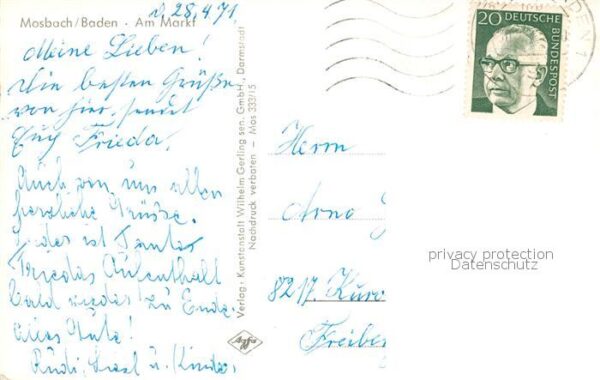 Mosbach/Baden · Am Markt
d. 28.4.71
Meine Lieben!
Die besten Grüße
von hier, sendet
Euch Frieda.
Auch von uns allen
herzliche Grüsse.
Leider ist Tantes
Friedas Aufenthalt
bald wieder zu Ende.
Alles Gute!
Rudi, Liesl u. Kinder
Verlag: Kunstanstalt Wilhelm Gerling sen. GmbH., Darmstadt
Nachdruck verboten – Mos 333/15
Agfa
20 DEUTSCHE
BUNDESPOST
Herrn
Arno
8217
Freiber
privacy protection
Datenschutz